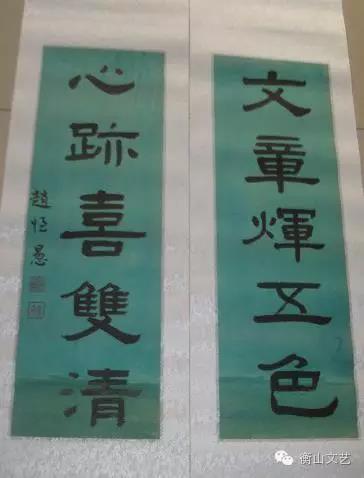 文章煇五色
心跡喜雙清
趙恒惖
衡山文艺